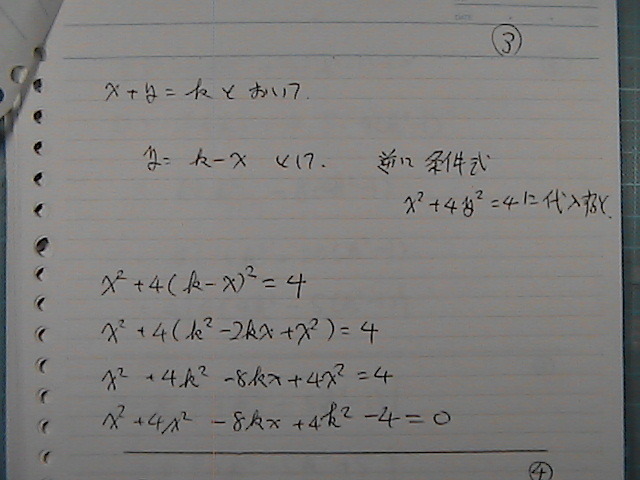 ③
x+y=kとおいて.
y=k-xして. 逆に条件式
x²+4y²=4に代入すると.
x²+4(k-x)²=4
x²+4(k²-2kx+x²)=4
x²+4k²-8kx+4x²=4
x²+4x²-8kx+4k²-4=0
④